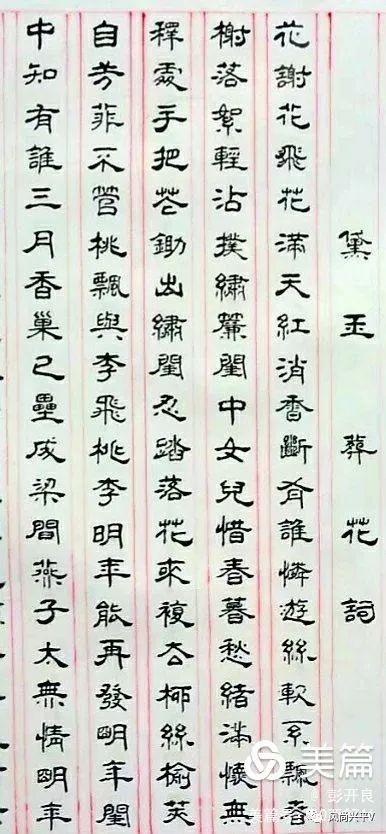 黛玉葬花詞
花謝花飛花滿天紅消香斷有誰憐遊絲軟系飄春
榭落絮輕沾撲繡簾閨中女兒惜春暮愁緒滿懷無
釋處手把花鋤出繡閨忍踏落花來複去柳絲榆莢
自芳菲不管桃飄與李飛桃李明年能再發明年閨
中知有誰三月香巢已壘成梁間燕子太無情明年
美篇
@彭开良
风尚兴平V